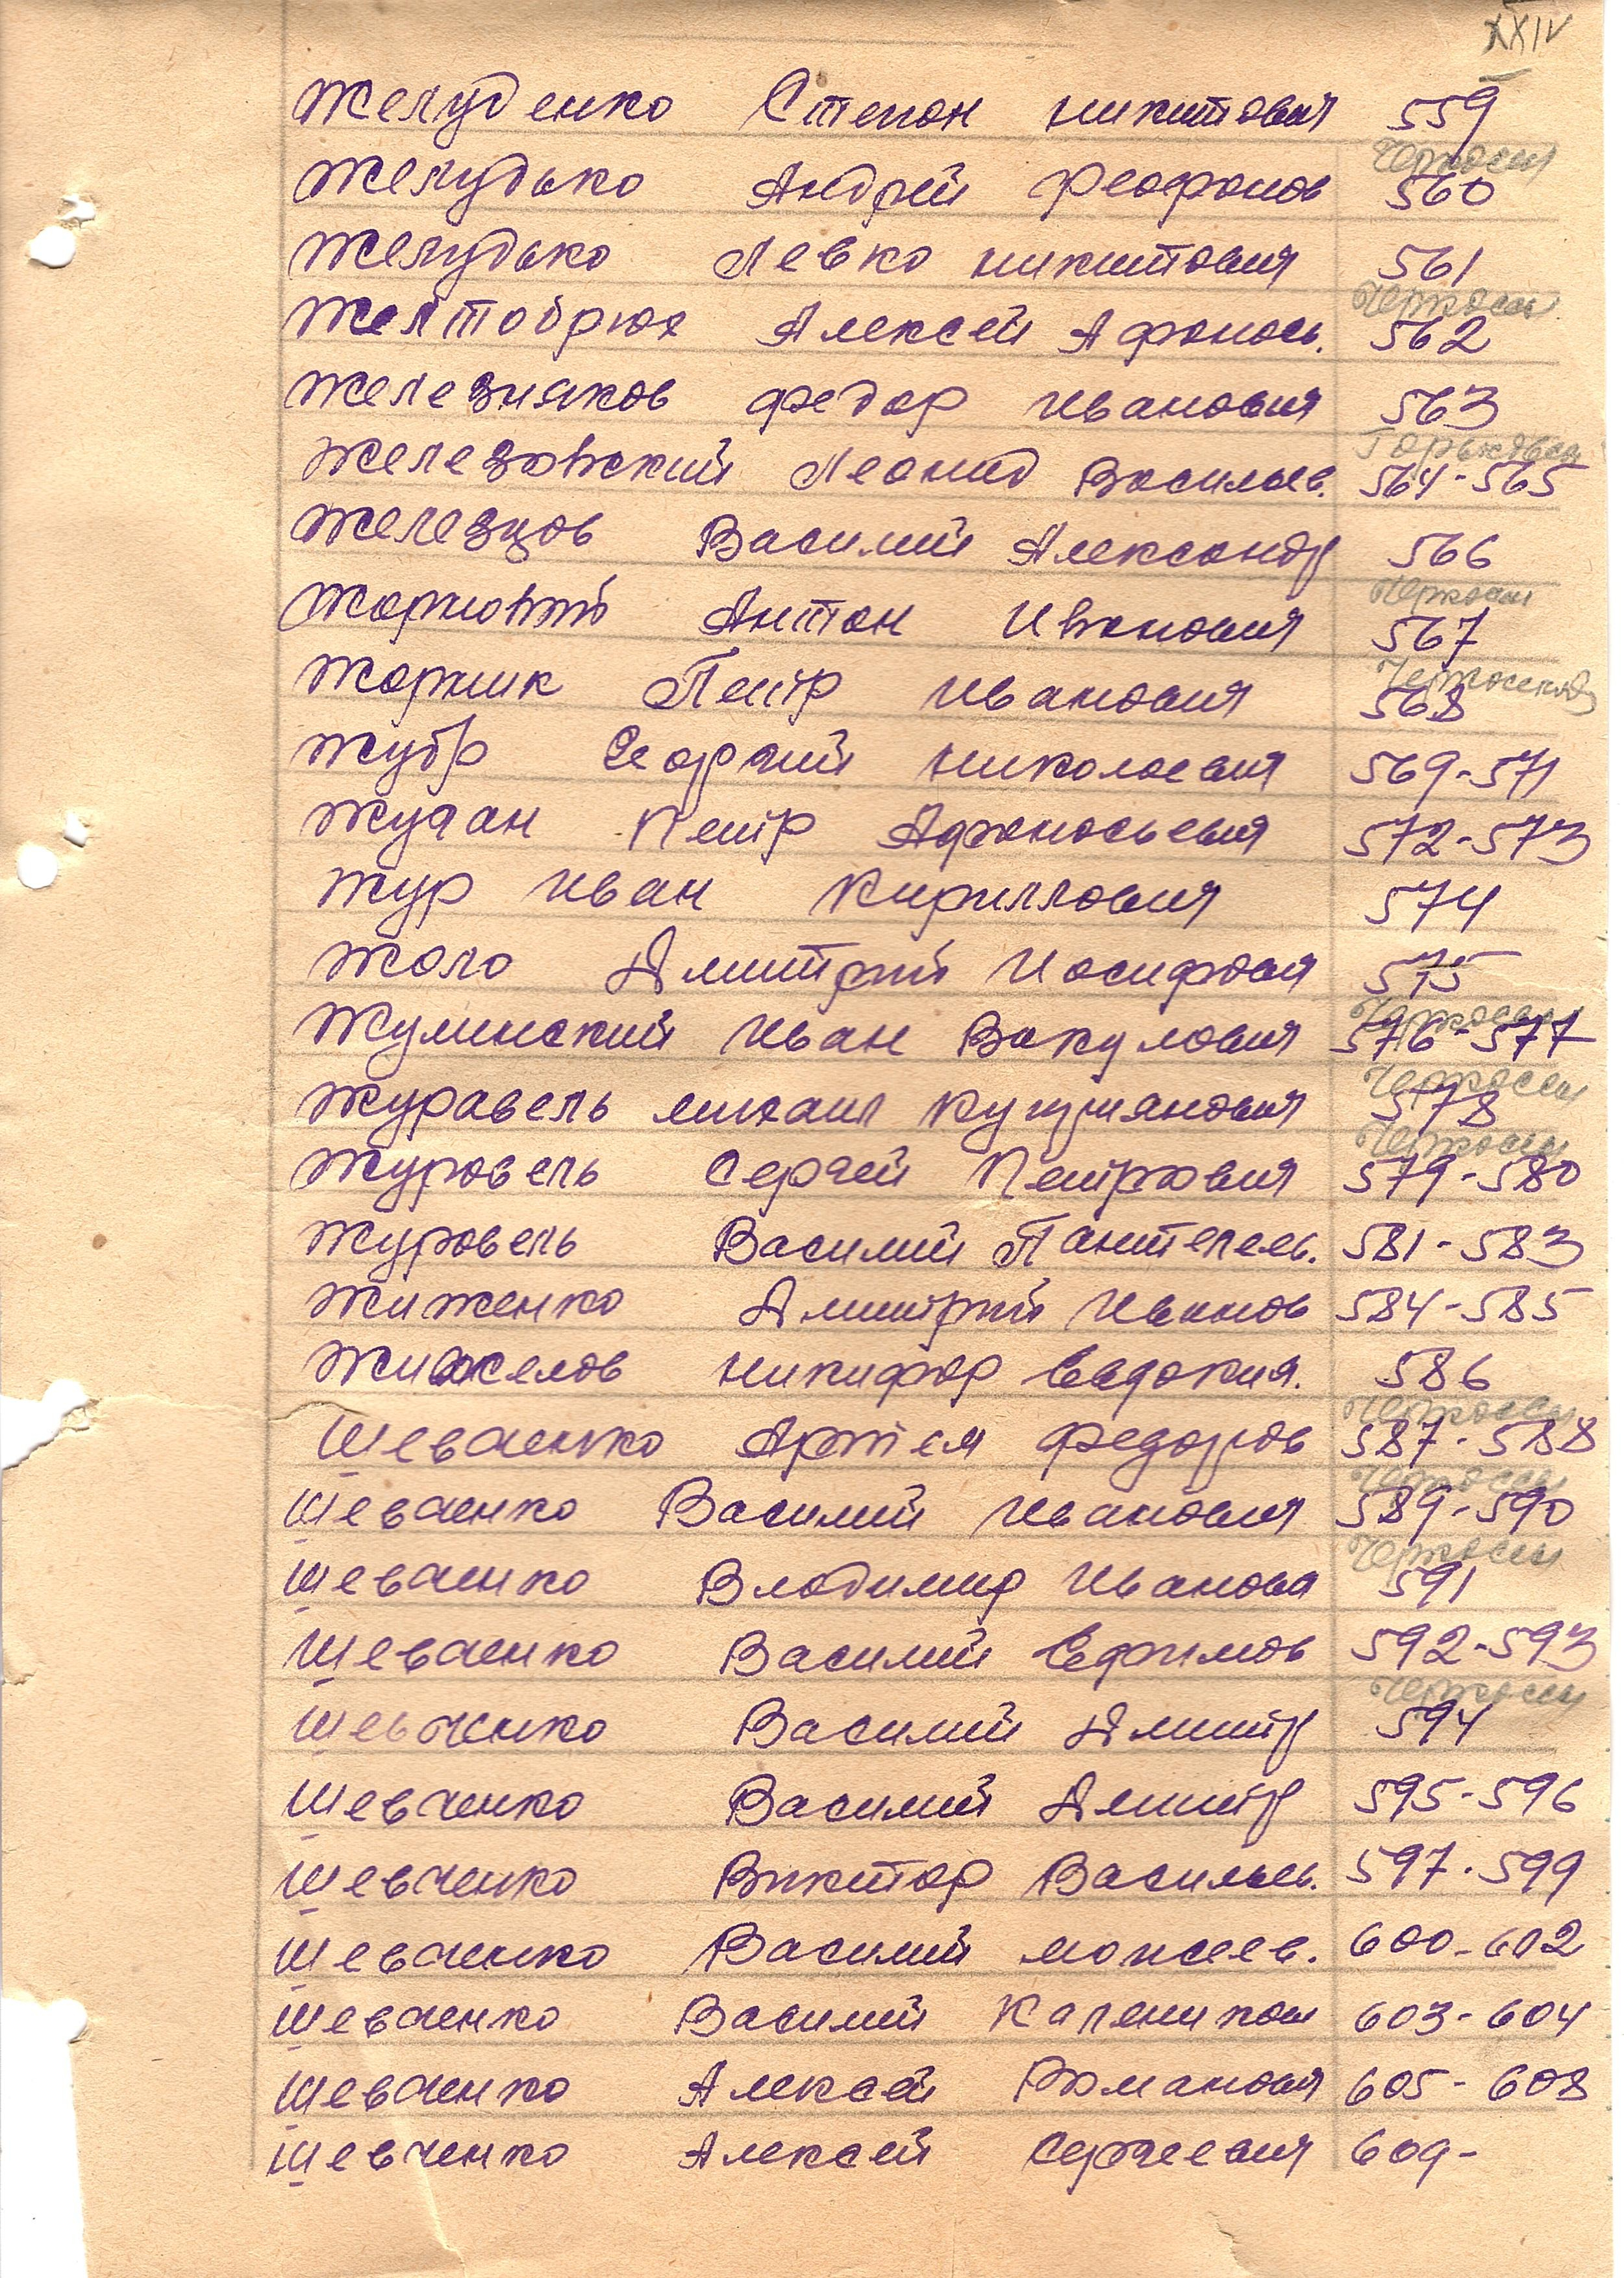 XXIV
Желуденко Степан Никитович 559
Черкассы
Желудько Андрей Феофанов 560
Желудько Левко Никитович 561
Черкассы
Желтобрюх Алексей Афанась. 562
Железняков Федор Иванович 563
Горьковск
Железовский Леонид Васильев. 564-565
Железцов Василий Александр 566
Черкассы
Антон Иванович 567
Черкасской
Жорник Петр Иванович 568
Жубр Георгий Николаевич 569-571
Жучан Петр Афанасьевич 572-573
Жур Иван Кириллович 574
Жоло Дмитрий Иосифович 575
Черкассы
Жулинский Иван Вакулович 576-577
Черкассы
Журавель Михаил Кузмянович 578
Черкассы
Журовель Сергей Петрович 579-580
Журовель Василий Пантелеев. 581-583
Жиженко Дмитрий Иванов 584-585
Никифор Евдоким. 586
Черкассы
Шевченко Артем Федоров 587-588
Черкассы
Шевченко Василий Иванович 589-590
Черкассы
Шевченко Владимир Иванович 591
Шевченко Василий Ефимов 592-593
Черкассы
Шевченко Василий Дмитр 594
Шевченко Василий Дмитр 595-596
Шевченко Виктор Васильев. 597-599
Шевченко Василий Моисеев. 600-602
Шевченко Василий Каленикович 603-604
Шевченко Алексей Романович 605-608
Шевченко Алексей Сергеевич 609-